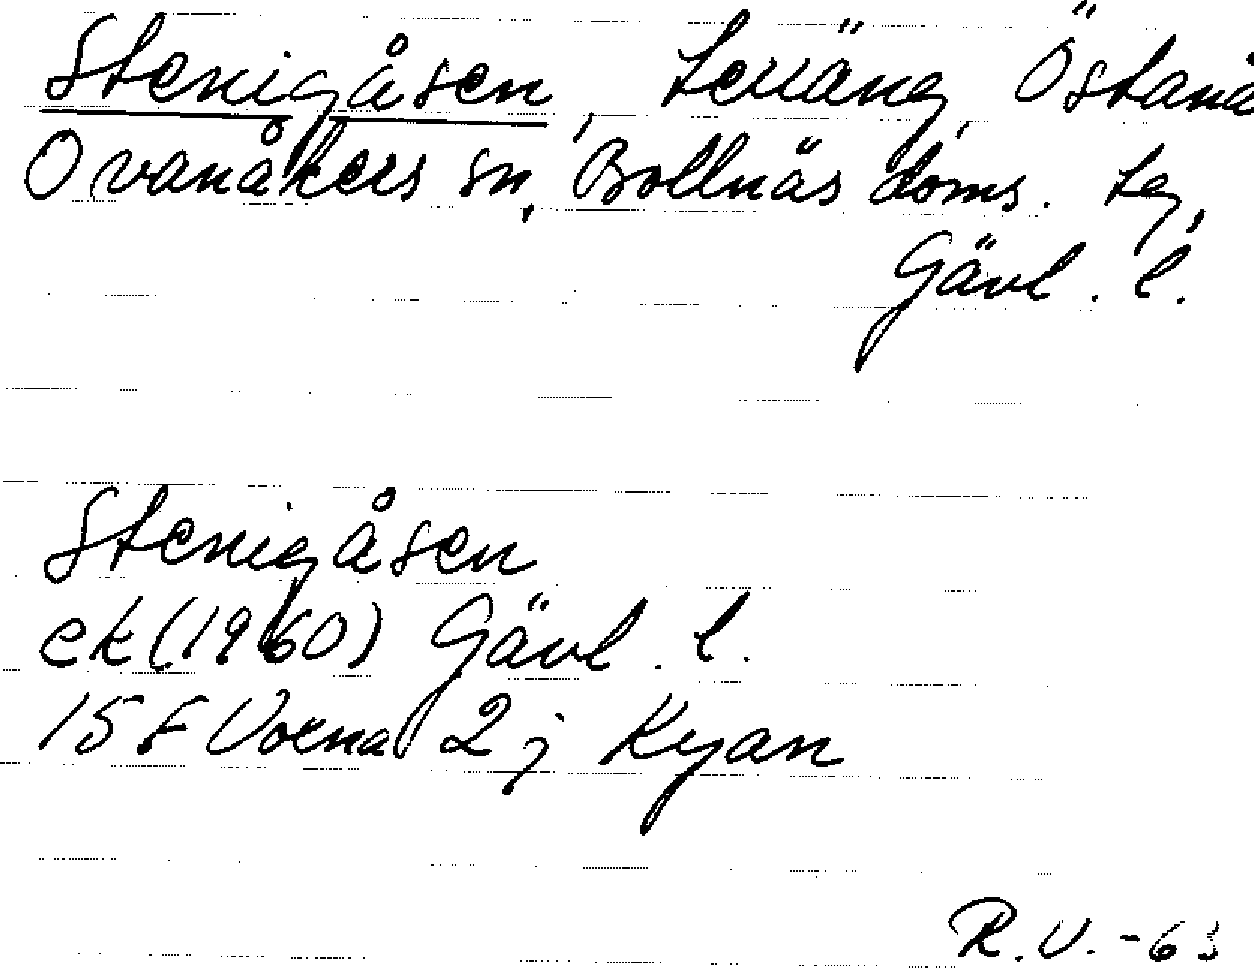 Stenigåsen, terräng, Östanå
Ovanåkers sn, Bollnäs doms. tg,
Gävl. l.
Stenigåsen
ek (1960) Gävl. l.
15 F Voxna 2 j Kyan
R.V. -63